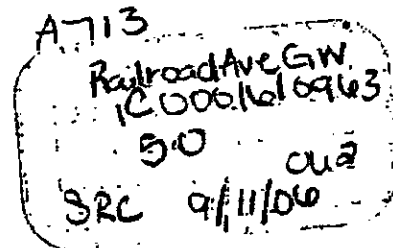 A-713
Railroad Ave GW
IC0001610963
5.0
OU2
SRC 9/11/06